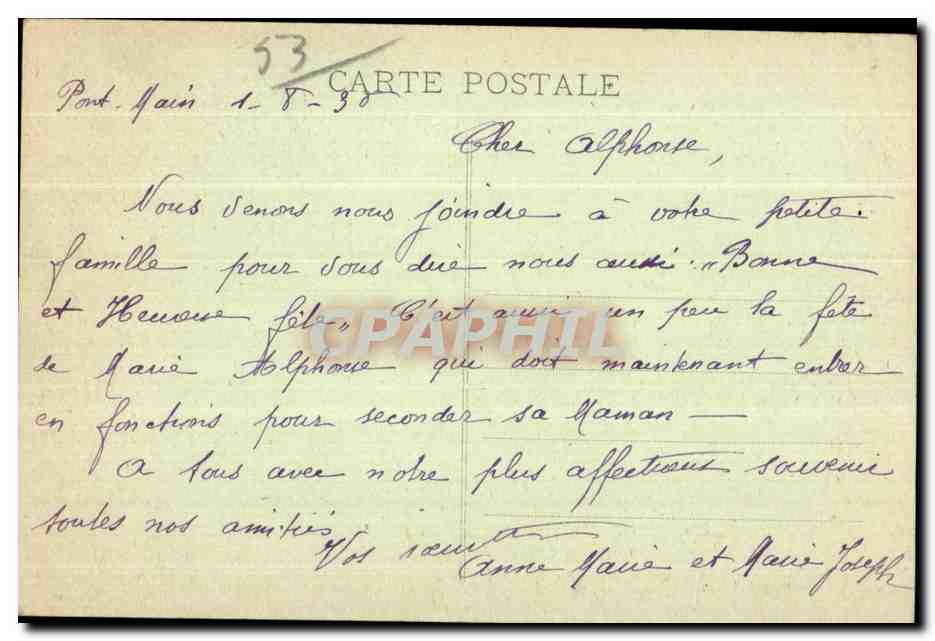 53
CARTE POSTALE
Pont-Main 1-8-30
Cher Alphonse,
Nous venons nous joindre à votre petite
famille pour vous dire nous aussi "Bonne
et Heureuse fête" C'est aussi un peu la fête
de Marie Alphonse qui doit maintenant entrer
en fonctions pour seconder sa Maman —
A tous avec notre plus affectueux souvenir
toutes nos amitiés
Vos soeurs
Anne Marie et Marie Joseph
CPAPHIL